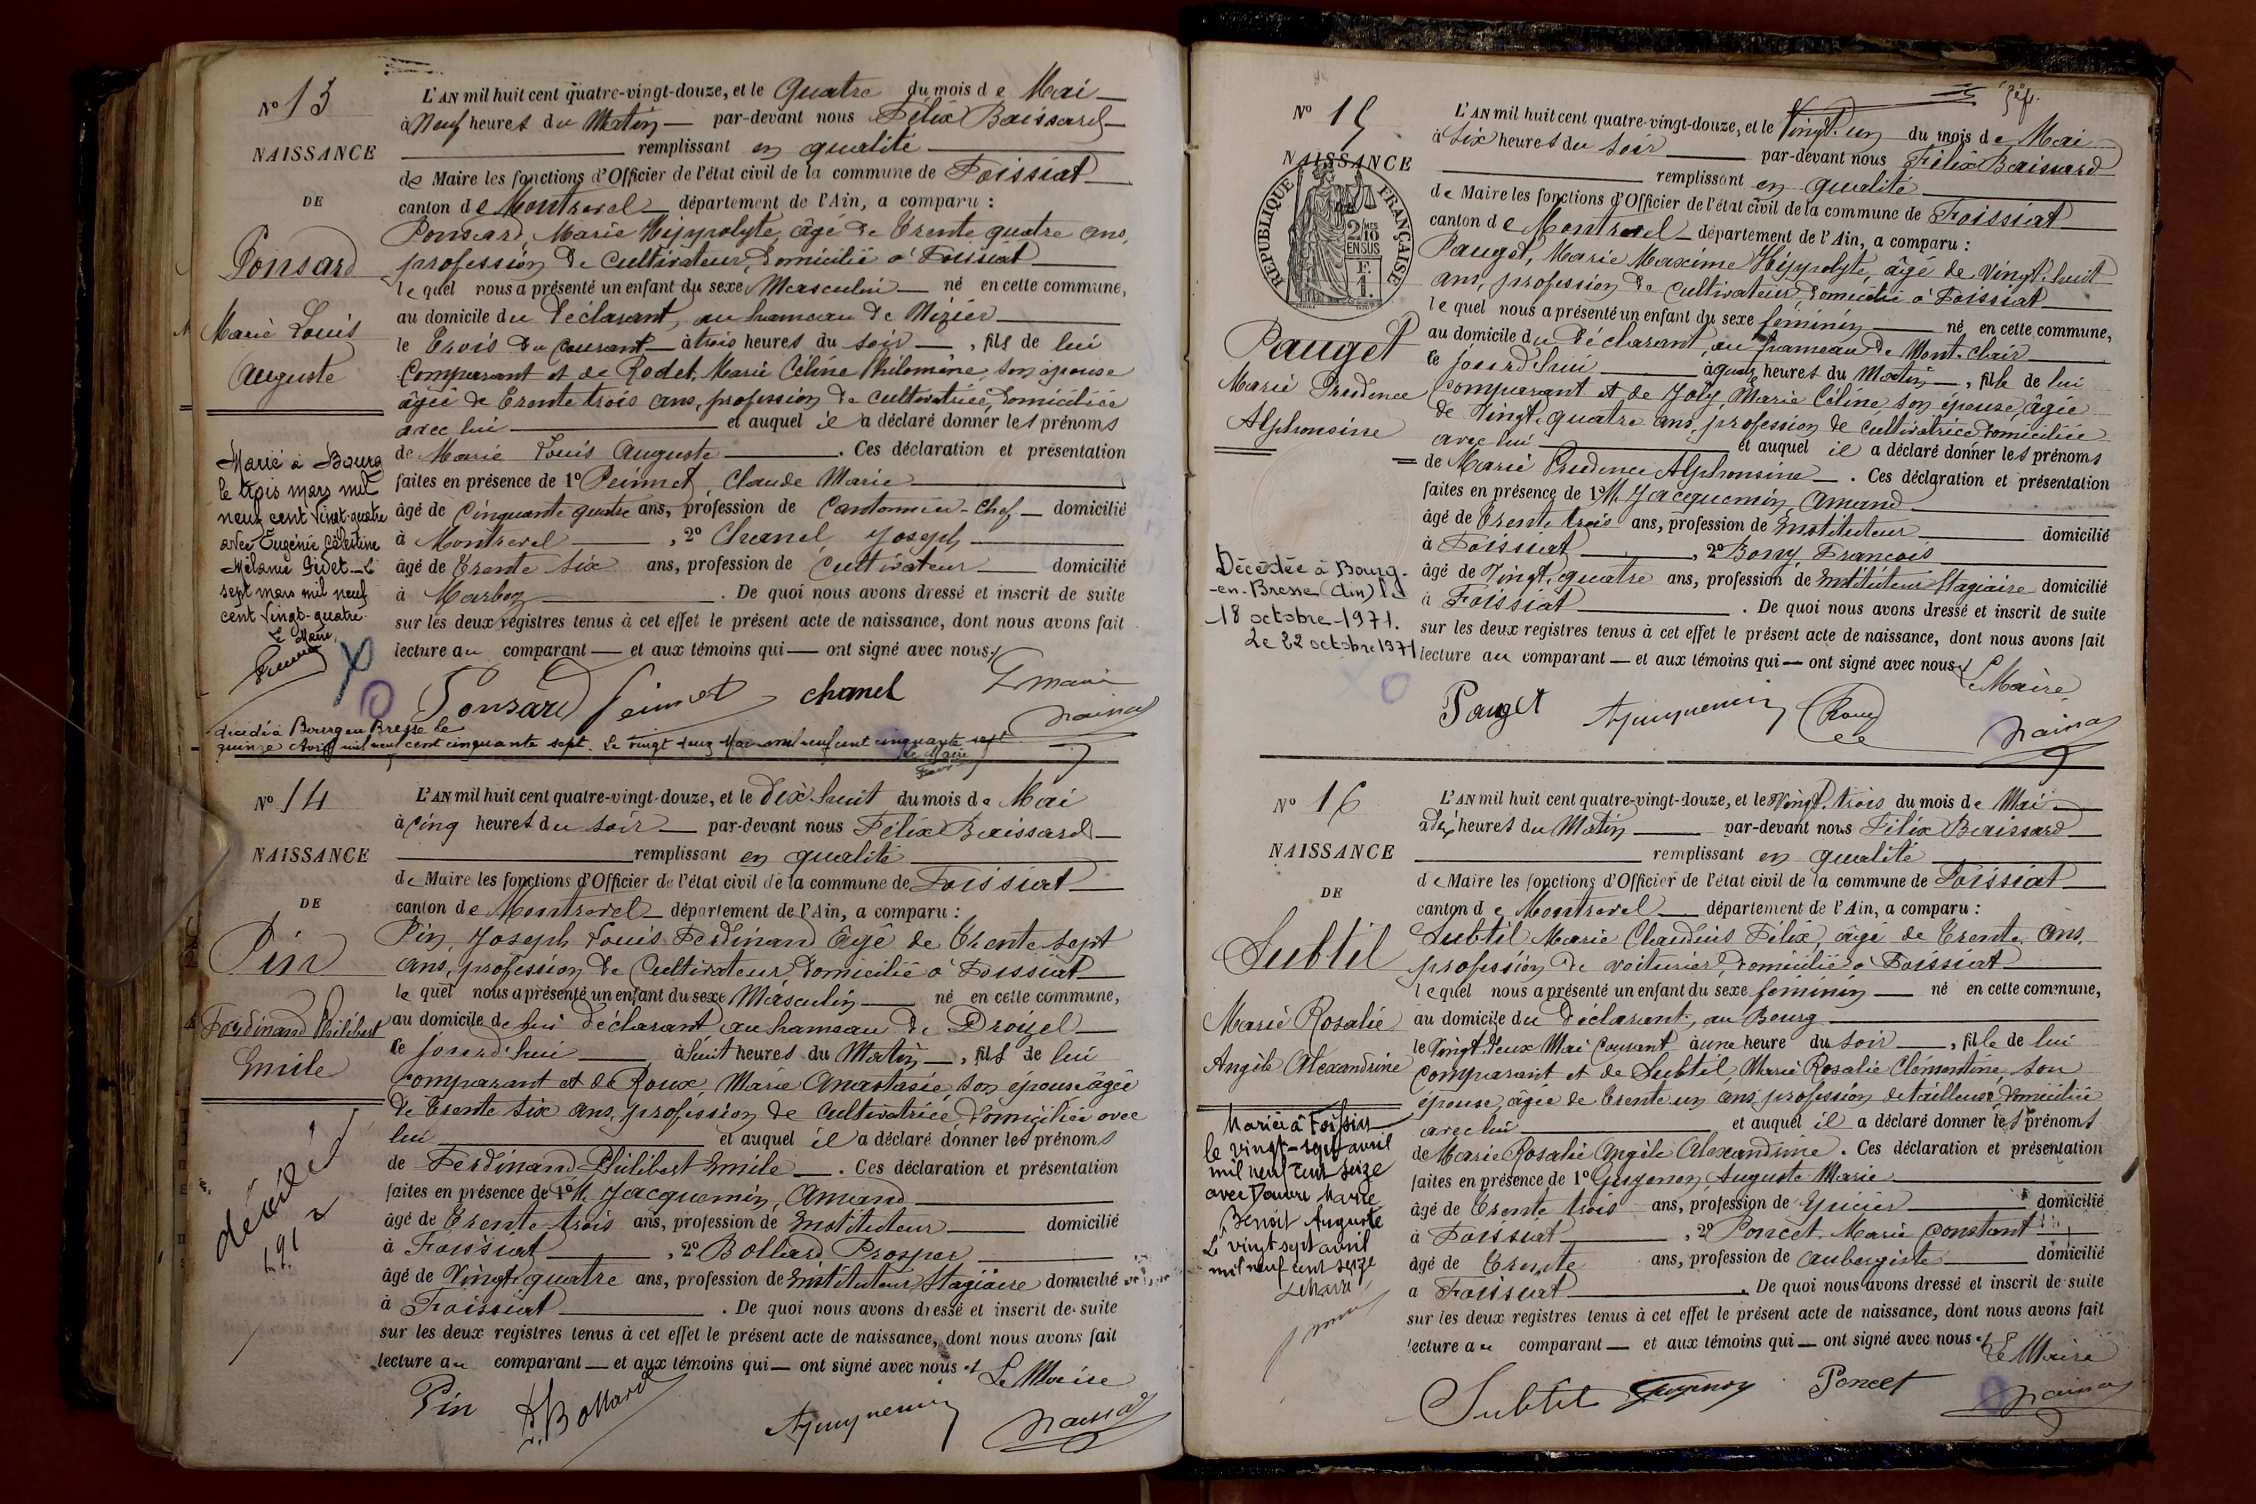 N° 13
NAISSANCE
DE
Ponsard
Marie Louis
Auguste
Marié à Bourg
le trois mars mil
neuf cent vingt-quatre
avec Eugénie Célestine
Mélanie Gidet - le
sept mars mil neuf
cent vingt-quatre
Le Maire,
L'AN mil huit cent quatre-vingt-douze, et le Quatre du mois de Mai
à Neuf heures du Matin par-devant nous Félix Baissard
remplissant en qualité
de Maire les fonctions d'Officier de l'état civil de la commune de Foissiat
canton de Montrevel département de l'Ain, a comparu :
Ponsard, Marie Hippolyte, âgé de trente quatre ans,
profession de cultivateur, domicilié à Foissiat
lequel nous a présenté un enfant du sexe Masculin né en cette commune,
au domicile du déclarant, au hameau de Mizier
le trois du courant à trois heures du soir, fils de lui
comparant et de Rodet, Marie Céline Philomène, son épouse
âgée de trente trois ans, profession de cultivatrice, domiciliée
avec lui et auquel il a déclaré donner les prénoms
de Marie Louis Auguste. Ces déclaration et présentation
faites en présence de 1° Peinnet, Claude Marie
âgé de cinquante quatre ans, profession de Cantonnier-Chef domicilié
à Montrevel, 2° Chanel Joseph
âgé de trente six ans, profession de cultivateur domicilié
à Marboz. De quoi nous avons dressé et inscrit de suite
sur les deux registres tenus à cet effet le présent acte de naissance, dont nous avons fait
lecture au comparant et aux témoins qui ont signé avec nous.
Ponsard Peinnet chanel Le maire
décédé à Bourg en Bresse le
quinze Avril mil neuf cent cinquante sept. Le vingt deux Mai mil neuf cent cinquante sept
Le Maire
N° 14
NAISSANCE
DE
Pin
Ferdinand Philibert
Emile
décédé
L'AN mil huit cent quatre-vingt-douze, et le dix-huit du mois de Mai
à cinq heures du soir par-devant nous Félix Baissard
remplissant en qualité
de Maire les fonctions d'Officier de l'état civil de la commune de Foissiat
canton de Montrevel département de l'Ain, a comparu :
Pin, Joseph Louis Ferdinand âgé de trente sept
ans, profession de cultivateur domicilié à Foissiat
lequel nous a présenté un enfant du sexe Masculin né en cette commune,
au domicile de lui déclarant au hameau de Droizel
le jourd'hui à huit heures du Matin, fils de lui
comparant et de Roux, Marie Anastasie, son épouse âgée
de trente six ans, profession de cultivatrice, domiciliée avec
lui et auquel il a déclaré donner les prénoms
de Ferdinand Philibert Emile. Ces déclaration et présentation
faites en présence de 1° M. Jacquemin, Amand
âgé de trente trois ans, profession de Instituteur domicilié
à Foissiat, 2° Bollard Prosper
âgé de vingt quatre ans, profession de Instituteur Stagiaire domicilié
à Foissiat. De quoi nous avons dressé et inscrit de suite
sur les deux registres tenus à cet effet le présent acte de naissance, dont nous avons fait
lecture au comparant et aux témoins qui ont signé avec nous et Le Maire
Pin P. Bollard AJacquemin
N° 15
NAISSANCE
RÉPUBLIQUE FRANÇAISE
2/10mes
EN SUS
F.
1.
Pauget
Marie Prudence
Alphonsine
Décédée à Bourg-
-en-Bresse (Ain) le
18 octobre 1971.
Le 22 octobre 1971
L'AN mil huit cent quatre-vingt-douze, et le Vingt un du mois de Mai
à six heures du soir par-devant nous Félix Baissard
remplissant en qualité
de Maire les fonctions d'Officier de l'état civil de la commune de Foissiat
canton de Montrevel département de l'Ain, a comparu :
Pauget, Marie Maxime Hippolyte, âgé de vingt huit
ans, profession de cultivateur domicilié à Foissiat
lequel nous a présenté un enfant du sexe féminin né en cette commune,
au domicile du déclarant, au hameau de Mont-clair
le jourd'hui à quatre heures du Matin, fille de lui
comparant et de Joly, Marie Céline, son épouse, âgée
de vingt quatre ans, profession de cultivatrice domiciliée
avec lui et auquel il a déclaré donner les prénoms
de Marie Prudence Alphonsine. Ces déclaration et présentation
faites en présence de 1° M. Jacquemin, Amand
âgé de trente trois ans, profession de Instituteur domicilié
à Foissiat, 2° Bony, François
âgé de vingt quatre ans, profession de Instituteur Stagiaire domicilié
à Foissiat. De quoi nous avons dressé et inscrit de suite
sur les deux registres tenus à cet effet le présent acte de naissance, dont nous avons fait
lecture au comparant et aux témoins qui ont signé avec nous et
Le Maire
Pauget AJacquemin
N° 16
NAISSANCE
DE
Subtil
Marie Rosalie
Angèle Alexandrine
Mariée à Foissiat
le vingt-sept avril
mil neuf cent seize
avec Marie
Benoit Auguste
Le vingt sept avril
mil neuf cent seize
Le Maire
L'AN mil huit cent quatre-vingt-douze, et le Vingt-trois du mois de Mai
à dix heures du Matin par-devant nous Félix Baissard
remplissant en qualité
de Maire les fonctions d'Officier de l'état civil de la commune de Foissiat
canton de Montrevel département de l'Ain, a comparu :
Subtil Marie Claudius Félix, âgé de trente ans,
profession de voiturier, domicilié à Foissiat
lequel nous a présenté un enfant du sexe féminin né en cette commune,
au domicile du déclarant, au Bourg
le vingt deux Mai courant à une heure du soir, fille de lui
comparant et de Subtil, Marie Rosalie Clémentine, son
épouse, âgée de trente un ans, profession de tailleuse, domiciliée
avec lui et auquel il a déclaré donner les prénoms
de Marie Rosalie Angèle Alexandrine. Ces déclaration et présentation
faites en présence de 1° Guyenon Auguste Marie
âgé de trente trois ans, profession de épicier domicilié
à Foissiat, 2° Poncet, Marie Constant
âgé de trente ans, profession de aubergiste domicilié
à Foissiat. De quoi nous avons dressé et inscrit de suite
sur les deux registres tenus à cet effet le présent acte de naissance, dont nous avons fait
lecture au comparant et aux témoins qui ont signé avec nous et
Le Maire
Subtil Guyenon Poncet